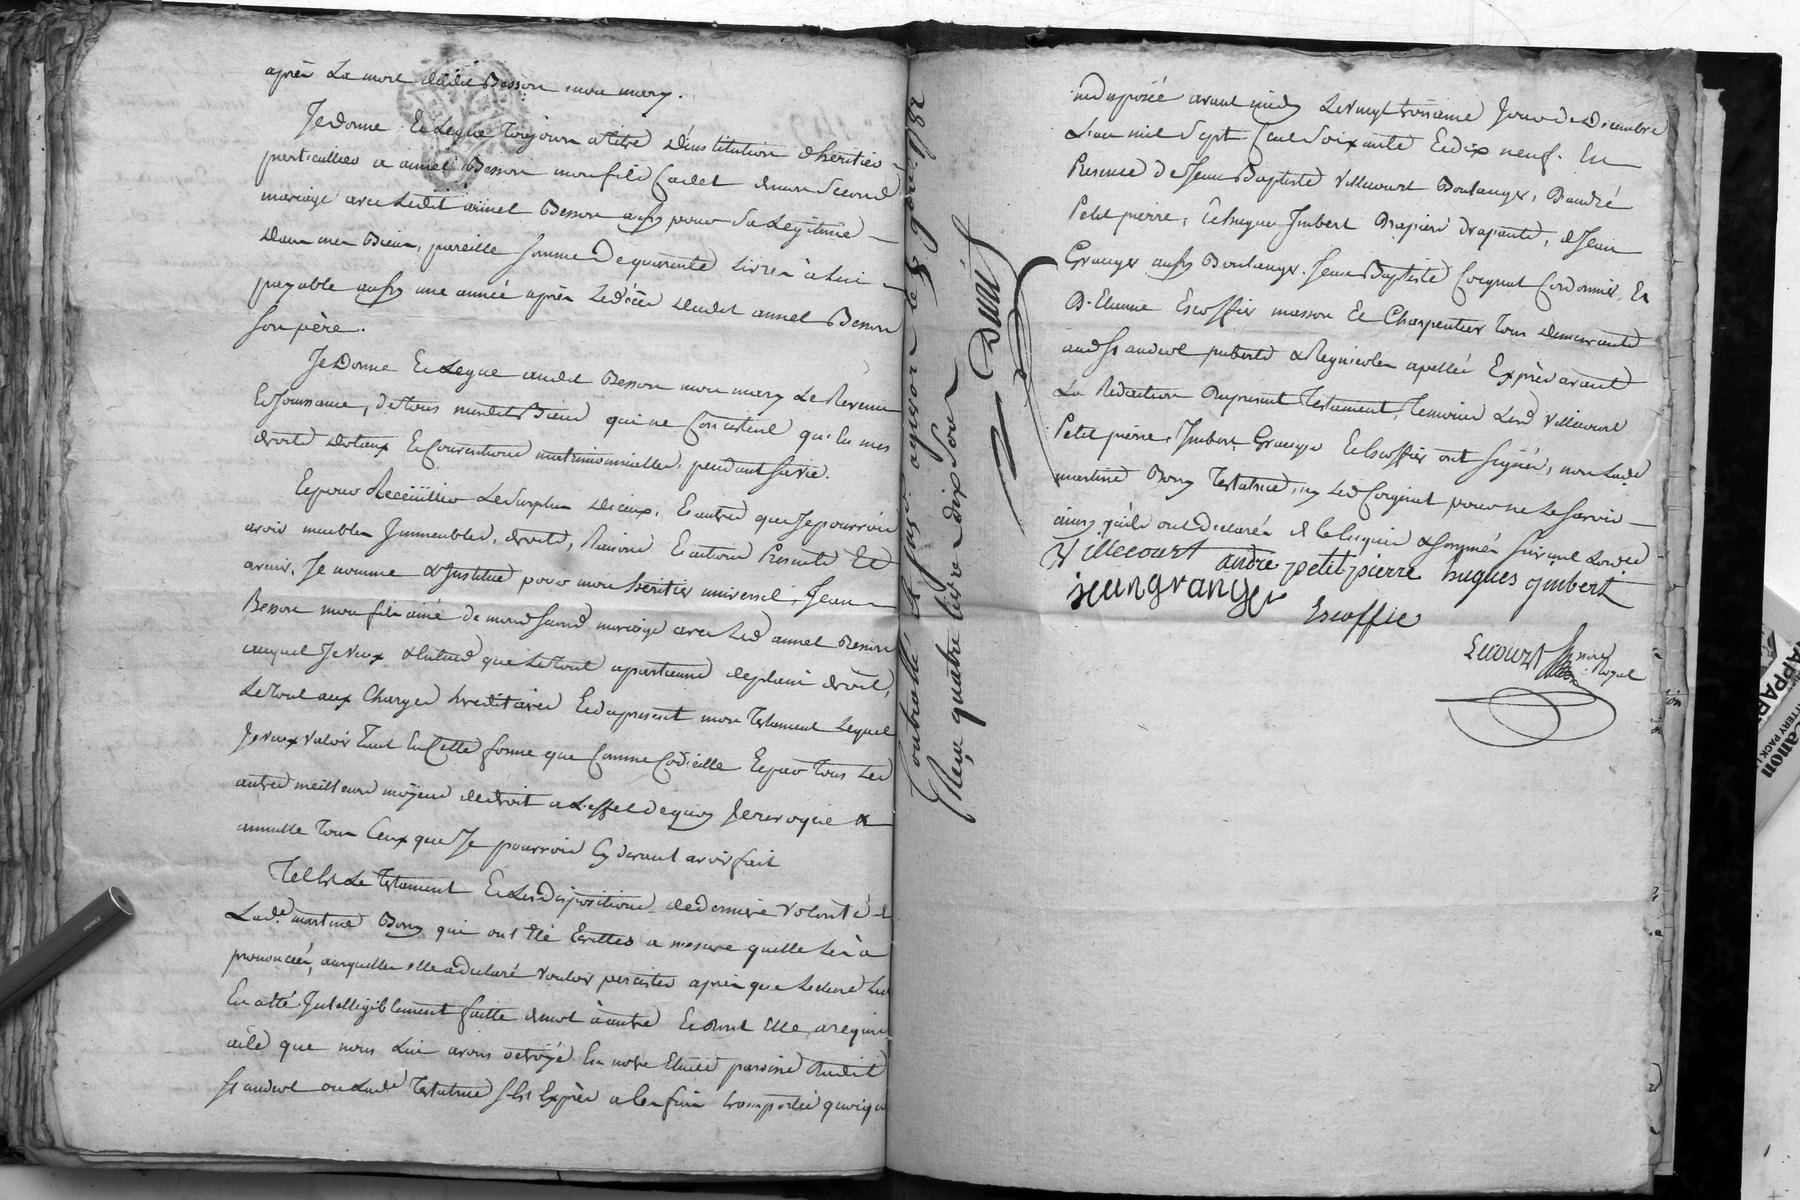 après La mort dudit Besson mon mary.
Je donne Et Legue toujours a titre d'institution dheritier
particullier a annet Besson mon fils Cadet de mon second
mariage avec Ledit annet Besson aussy pour Sa Légitime
dans mes Biens, pareille somme De quarante Livres à lui
payable aussy une année après Le décès dudit annet Besson
son père.
Je Donne Et Legue audit Besson mon mary Le Revenu
Et Jouissance, de tous mesdits Biens qui ne Consistent qu'En mes
droits dotaux Et Conventions matrimonialles, pendant sa vie.
Et pour Receüillir Le Surplus d'iceux, Et autres que Je pourrois
avoir meubles Jmmeubles, droits, Raisons Et actions Presents Et
avenir, Je nomme & Jnstitue pour mon heritier universel, Jean
Besson mon fils ainé de mond second mariage avec Led annet Besson
auquel Je Veux & Entend que Le tout apartienne de plain droit,
Le tout aux Charges hereditaires Et du present mon Testament Lequel
Je veux valoir Tant En Cette forme que Comme Codicille Et par Tous Les
autres meilleurs moÿens de droit a L'effet de quoy Je revoque &
annulle Tous Ceux que Je pourrois Cy devant avoir fait
Tel Est Le Testament Et Les dispositions de derniere Volonté de
Lade. martine Bory qui ont Eté Ecrittes a mesure quelle Les a
prononcées, auxquelles elle a declaré Vouloir persister après que Lecture Lui
En a été Jntelligiblement faitte de mot à autre Et dont Elle, a requis
acte que nous Lui avons octroÿé En notre Etude parvis Audit
St andeol ou Lade Testatrice S'est Exprès a Ces fins transportée quoique
Controllé à
le 8 9bre 1782
Reçu quatre livres dix sous
Duval
indisposée avant midy Le vingt troisieme Jour de Decembre
L'an mil Sept Cent Soixante Et dix neuf. En
Presence de Jean Baptiste Villecourt Boulanger, D'andré
Petit pierre, Et hugue Jmbert Drapiers drapants, de Jean
Granger aussy Boulanger. Jean Baptiste Coignat Cordonnier, Et
D'Etienne Escoffier masson Et Charpentier Tous demeurants
aud St andeol puberts & Regnicoles apellés Exprès avant
La Redaction du present Testament, Temoins Lesd Villecourt
Petit pierre, Jmbert, Granger Et Escoffier ont signés, non Lade
martine Bory Testatrice, ny Led Coignat pour ne Le savoir
ainsy qu'ils ont declarés de Ce Enquis & sommés suivant L'ordce
Villecourt andre petit pierre hugues ymbert
jean granger
Escoffie
Lecourt nore Royal
FRANCE
Canon